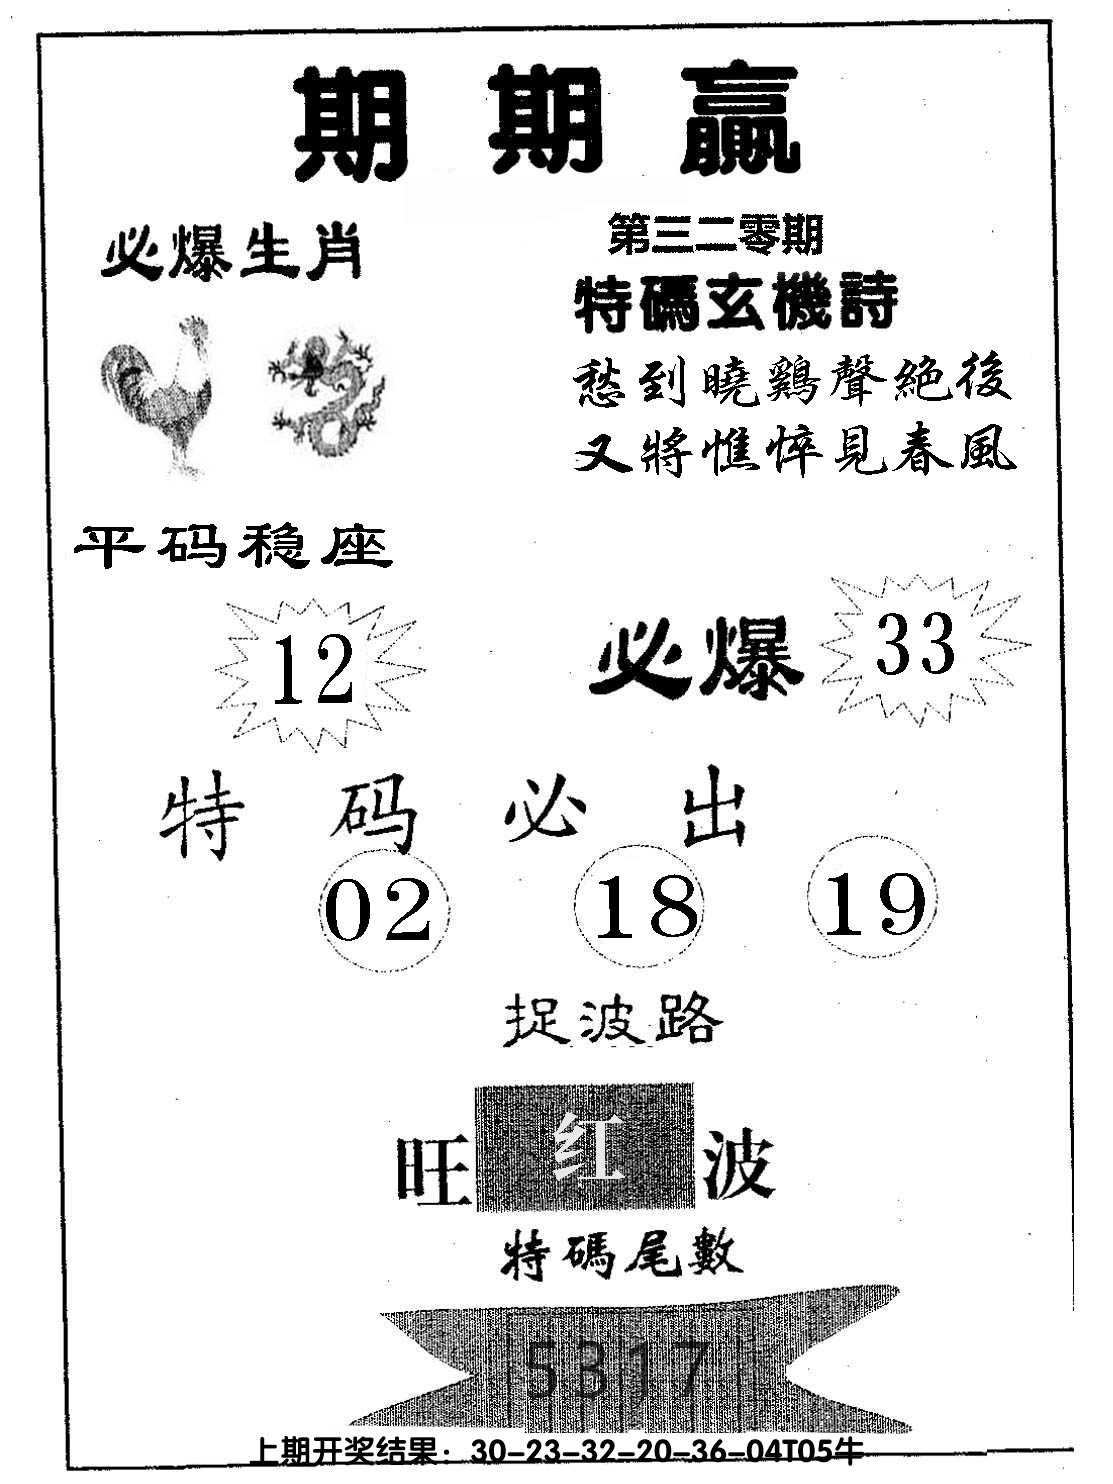 期期赢
必爆生肖
第三二零期
特碼玄機詩
愁到曉鷄聲絕後
又將憔悴見春風
平码稳座
12
必爆
33
特码必出
02 18 19
捉波路
旺红波
特碼尾數
5317
上期开奖结果：30-23-32-20-36-04T05牛